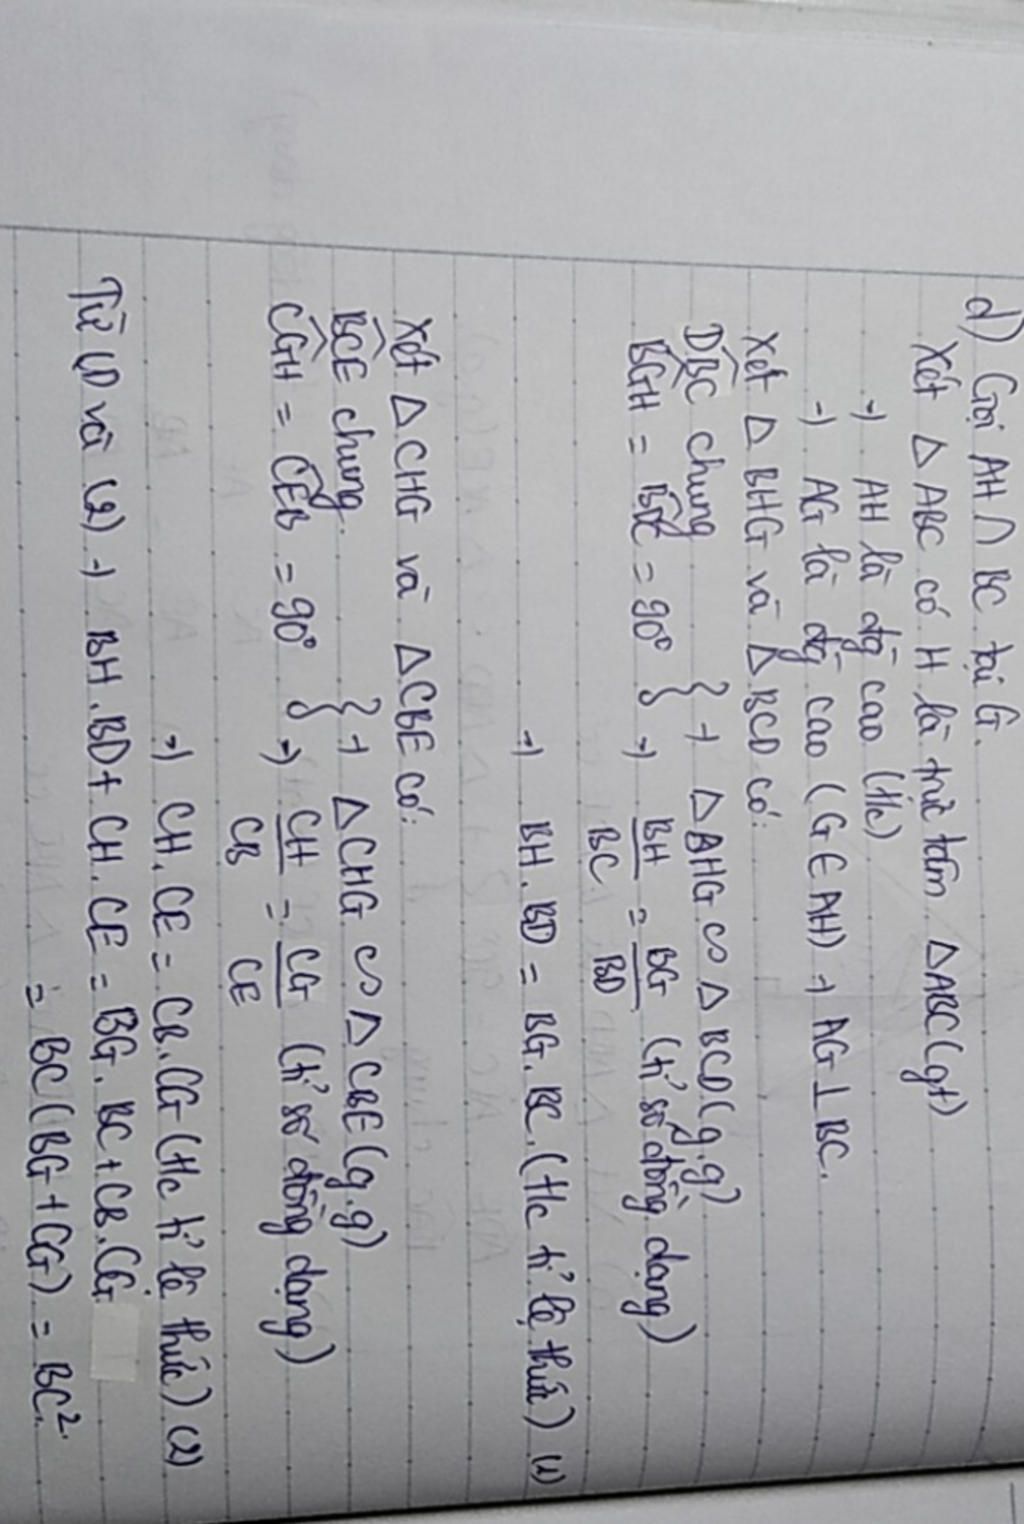 d) Gọi AH ∩ BC tại G.
Xét △ ABC có H là trực tâm △ABC (gt)
→) AH là đḡ cao (t/c)
→) AG là đḡ cao (G ∈ AH) → AG ⊥ BC.
Xét △ BHG và △ BCD có:
DBC chung } → △ BHG ∽ △ BCD (g.g)
BGH = BDC = 90° } →) BH/BC = BG/BD (tỉ số đồng dạng)
→) BH. BD = BG. BC. (t/c tỉ lệ thức) (1)
Xét △ CHG và △ CBE có:
BCE chung. } → △ CHG ∽ △ CBE (g.g)
CGH = CEB = 90° } →) CH/CB = CG/CE (tỉ số đồng dạng)
→) CH. CE = CB. CG (t/c tỉ lệ thức) (2)
Từ (1) và (2) →) BH. BD + CH. CE = BG. BC + CB. CG
= BC (BG + CG) = BC².